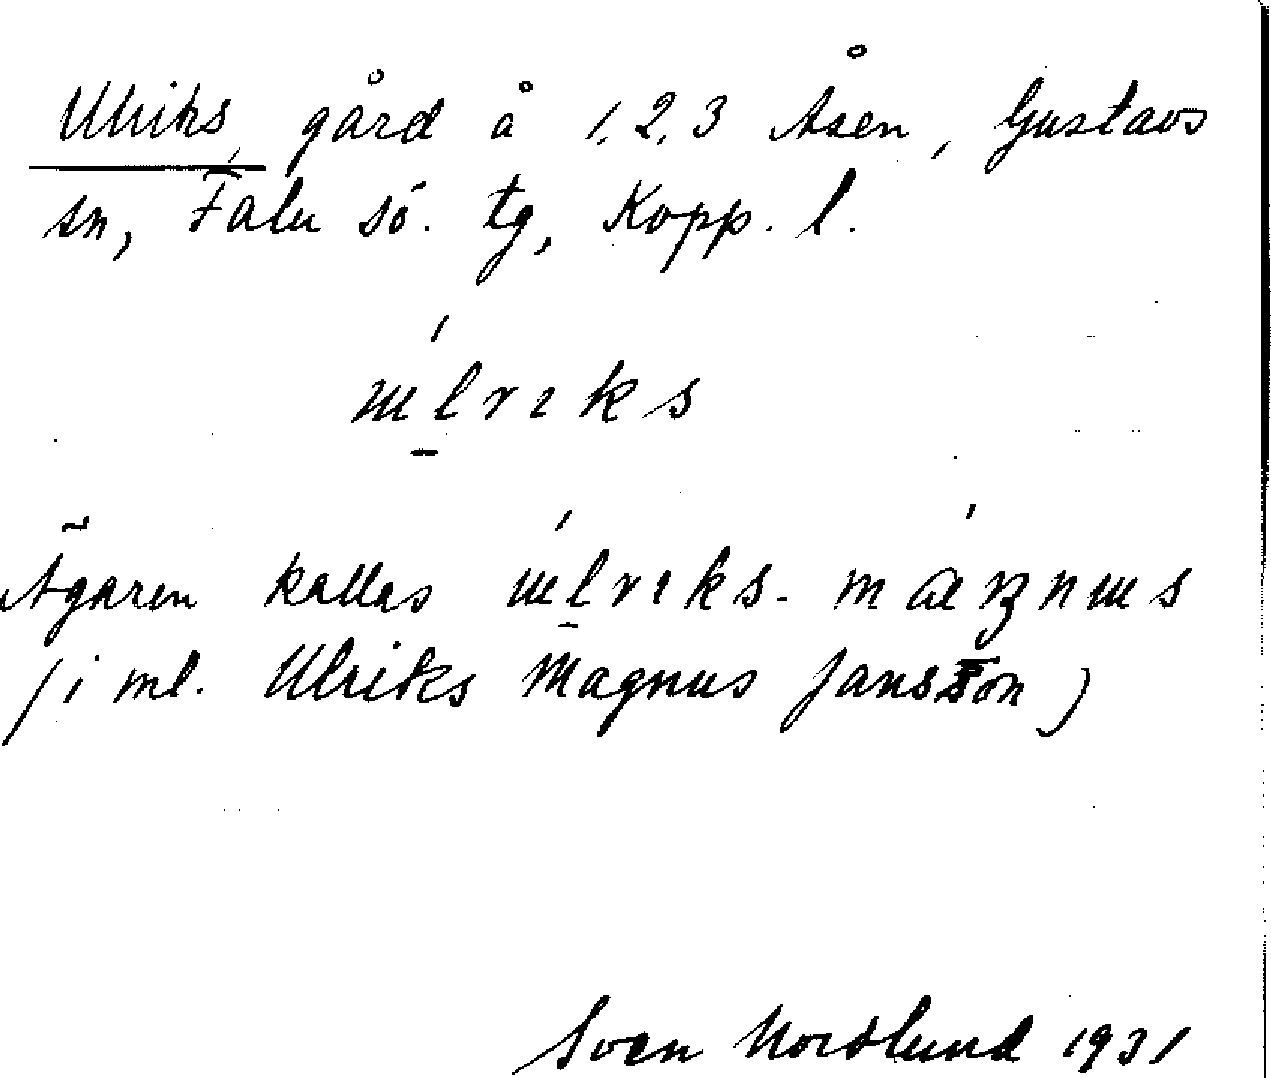 Ulriks, gård å 1, 2, 3 Åsen, Gustavs
sn, Falu sö. tg, Kopp. l.
ɯ́lrıks
Ägaren kallas ɯ́lrıks-
(i ml. Ulriks Magnus Jansson)
Sven Nordlund 1931